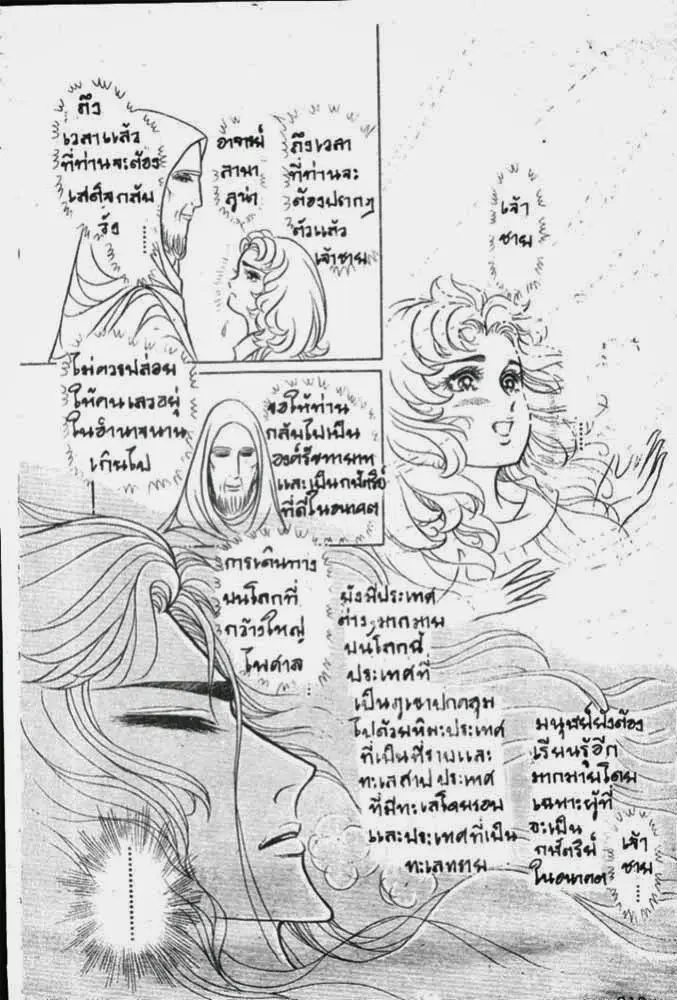 ถึงเวลา
ที่ท่านจะ
ต้องปรากฎ
ตัวแล้ว
เจ้าชาย
อาจารย์
ลานา
ลูน่า
ถึง
เวลาแล้ว
ที่ท่านจะต้อง
เสด็จกลับ
วัง
เจ้า
ชาย
ไม่ควรปล่อย
ให้คนเลวอยู่
ในอำนาจนาน
เกินไป
ขอให้ท่าน
กลับไปเป็น
องค์รัชทายาท
และเป็นกษัตริย์
ที่ดีในอนาคต
การเดินทาง
บนโลกที่
กว้างใหญ่
ไพศาล
ยังมีประเทศ
ต่างๆมากมาย
บนโลกนี้
ประเทศที่
เป็นภูเขาปกคลุม
ไปด้วยหิมะประเทศ
ที่เป็นที่ราบและ
ทะเลสาปประเทศ
ที่มีทะเลโดยรอบ
และประเทศที่เป็น
ทะเลทราย
มนุษย์ยังต้อง
เรียนรู้อีก
มากมายโดย
เฉพาะผู้ที่
จะเป็น
กษัตริย์
ในอนาคต
เจ้า
ชาย